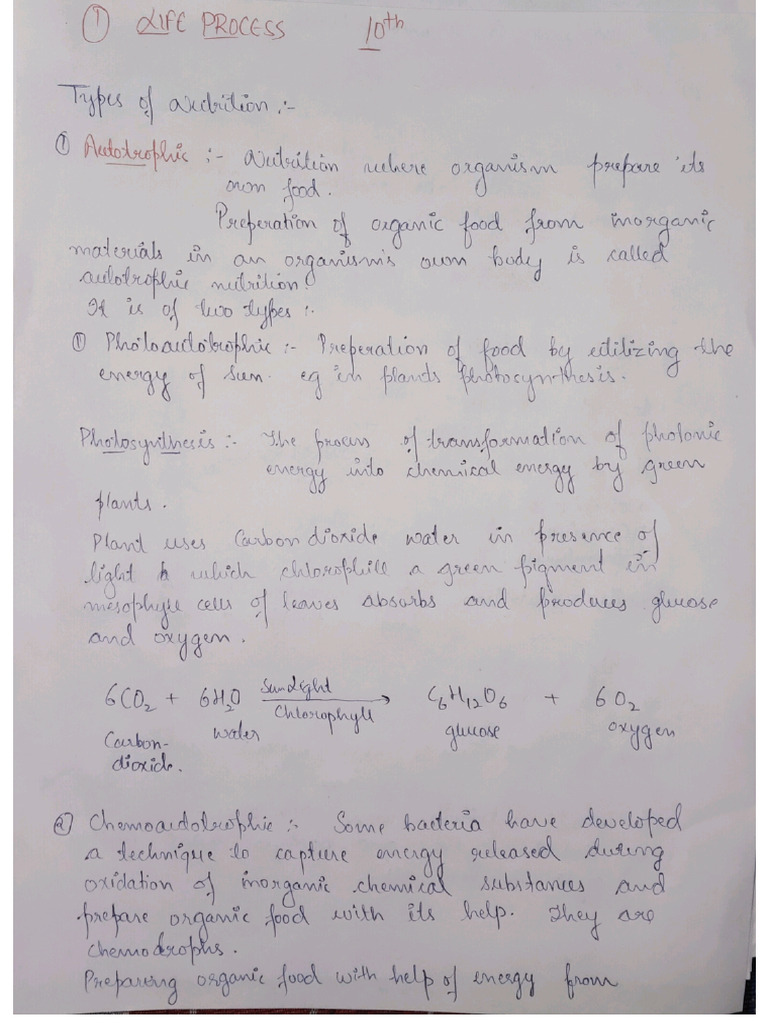 ① LIFE PROCESS 10th
Types of Nutrition :-
① Autotrophic :- Nutrition where organism prepare its
own food.
Preperation of organic food from inorganic
materials in an organism's own body is called
autotrophic nutrition.
It is of two types :-
① Photoautotrophic :- Preperation of food by utilizing the
energy of Sun. eg in plants Photocynthesis.
Photosynthesis :- The process of transformation of photonic
energy into chemical energy by green
plants.
Plant uses Carbondioxide water in presence of
light which chlorophill a green pigment in
mesophyle cells of leaves absorbs and produces glucose
and oxygen.
6CO2 + 6H2O Sunlight Chlorophyle → C6H12O6 + 6O2
Carbon- water glucose oxygen
dioxide.
② Chemoautotrophic :- Some bacteria have developed
a technique to capture energy released during
oxidation of inorganic chemical substances and
prepare organic food with its help. They are
chemotrophs.
Preparing organic food with help of energy from